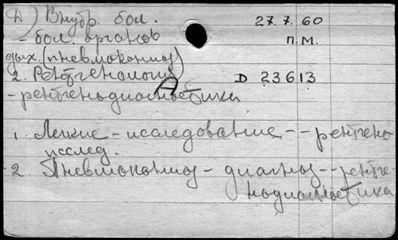 Д) Внутр. бол. 27.7.60
- бол. органов п.м.
дых. (пневмокониоз)
2. Рентгенология D 23613
- рентгенодиагностика
1. Легкие - исследование -- рентгено
исслед.
2. Пневмокониоз - диагноз -- рентге
нодиагностика